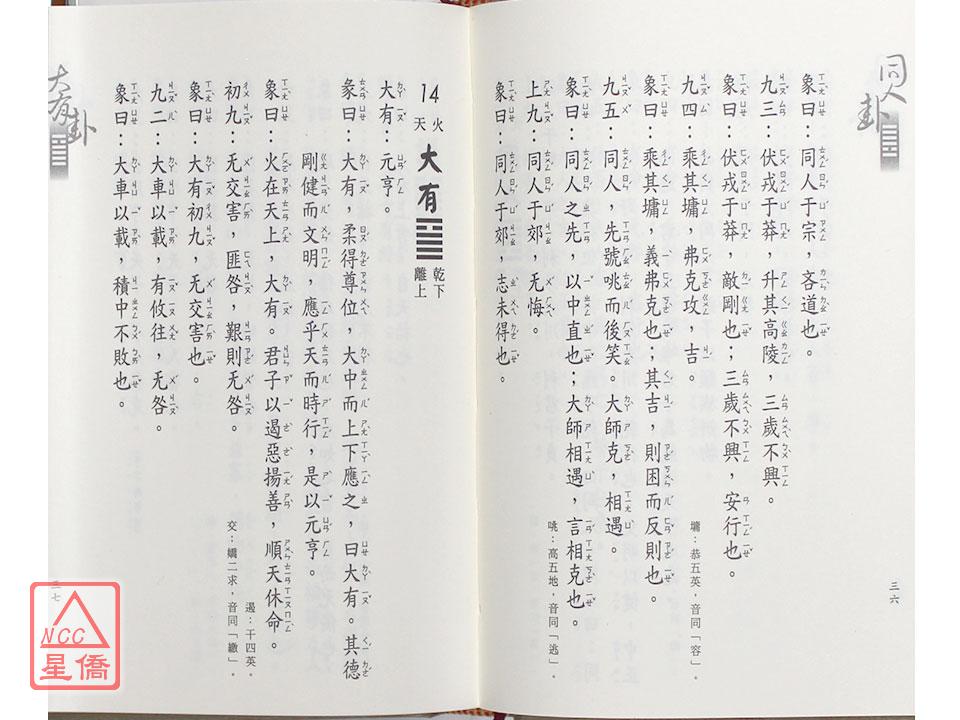 同人卦
象曰：同人于宗，吝道也。
九三：伏戎于莽，升其高陵，三歲不興。
象曰：伏戎于莽，敵剛也；三歲不興，安行也。
九四：乘其墉，弗克攻，吉。
墉：恭五英，音同「容」。
象曰：乘其墉，義弗克也；其吉，則困而反則也。
九五：同人，先號咷而後笑。大師克，相遇。
象曰：同人之先，以中直也；大師相遇，言相克也。
咷：高五地，音同「逃」。
上九：同人于郊，无悔。
象曰：同人于郊，志未得也。
三六
14 火天 大有 乾下離上
大有：元亨。
彖曰：大有，柔得尊位，大中而上下應之，曰大有。其德
剛健而文明，應乎天而時行，是以元亨。
象曰：火在天上，大有。君子以遏惡揚善，順天休命。
遏：干四英。
初九：无交害，匪咎，艱則无咎。
交：嬌二求，音同「繳」。
象曰：大有初九，无交害也。
九二：大車以載，有攸往，无咎。
象曰：大車以載，積中不敗也。
大有卦
三七
NCC
星僑